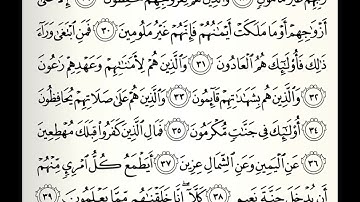 رَبِّهِمْ غَيْرُ مَأْمُونٍ ۝٢٨ وَٱلَّذِينَ هُمْ لِفُرُوجِهِمْ حَٰفِظُونَ ۝٢٩ إِلَّا عَلَىٰٓ
أَزْوَٰجِهِمْ أَوْ مَا مَلَكَتْ أَيْمَٰنُهُمْ فَإِنَّهُمْ غَيْرُ مَلُومِينَ ۝٣٠ فَمَنِ ٱبْتَغَىٰ وَرَآءَ
ذَٰلِكَ فَأُو۟لَٰٓئِكَ هُمُ ٱلْعَادُونَ ۝٣١ وَٱلَّذِينَ هُمْ لِأَمَٰنَٰتِهِمْ وَعَهْدِهِمْ رَٰعُونَ
۝٣٢ وَٱلَّذِينَ هُم بِشَهَٰدَٰتِهِمْ قَآئِمُونَ ۝٣٣ وَٱلَّذِينَ هُمْ عَلَىٰ صَلَاتِهِمْ يُحَافِظُونَ
۝٣٤ أُو۟لَٰٓئِكَ فِى جَنَّٰتٍ مُّكْرَمُونَ ۝٣٥ فَمَالِ ٱلَّذِينَ كَفَرُوا۟ قِبَلَكَ مُهْطِعِينَ
۝٣٦ عَنِ ٱلْيَمِينِ وَعَنِ ٱلشِّمَالِ عِزِينَ ۝٣٧ أَيَطْمَعُ كُلُّ ٱمْرِئٍ مِّنْهُمْ
أَن يُدْخَلَ جَنَّةَ نَعِيمٍ ۝٣٨ كَلَّآ ۖ إِنَّا خَلَقْنَٰهُم مِّمَّا يَعْلَمُونَ ۝٣٩